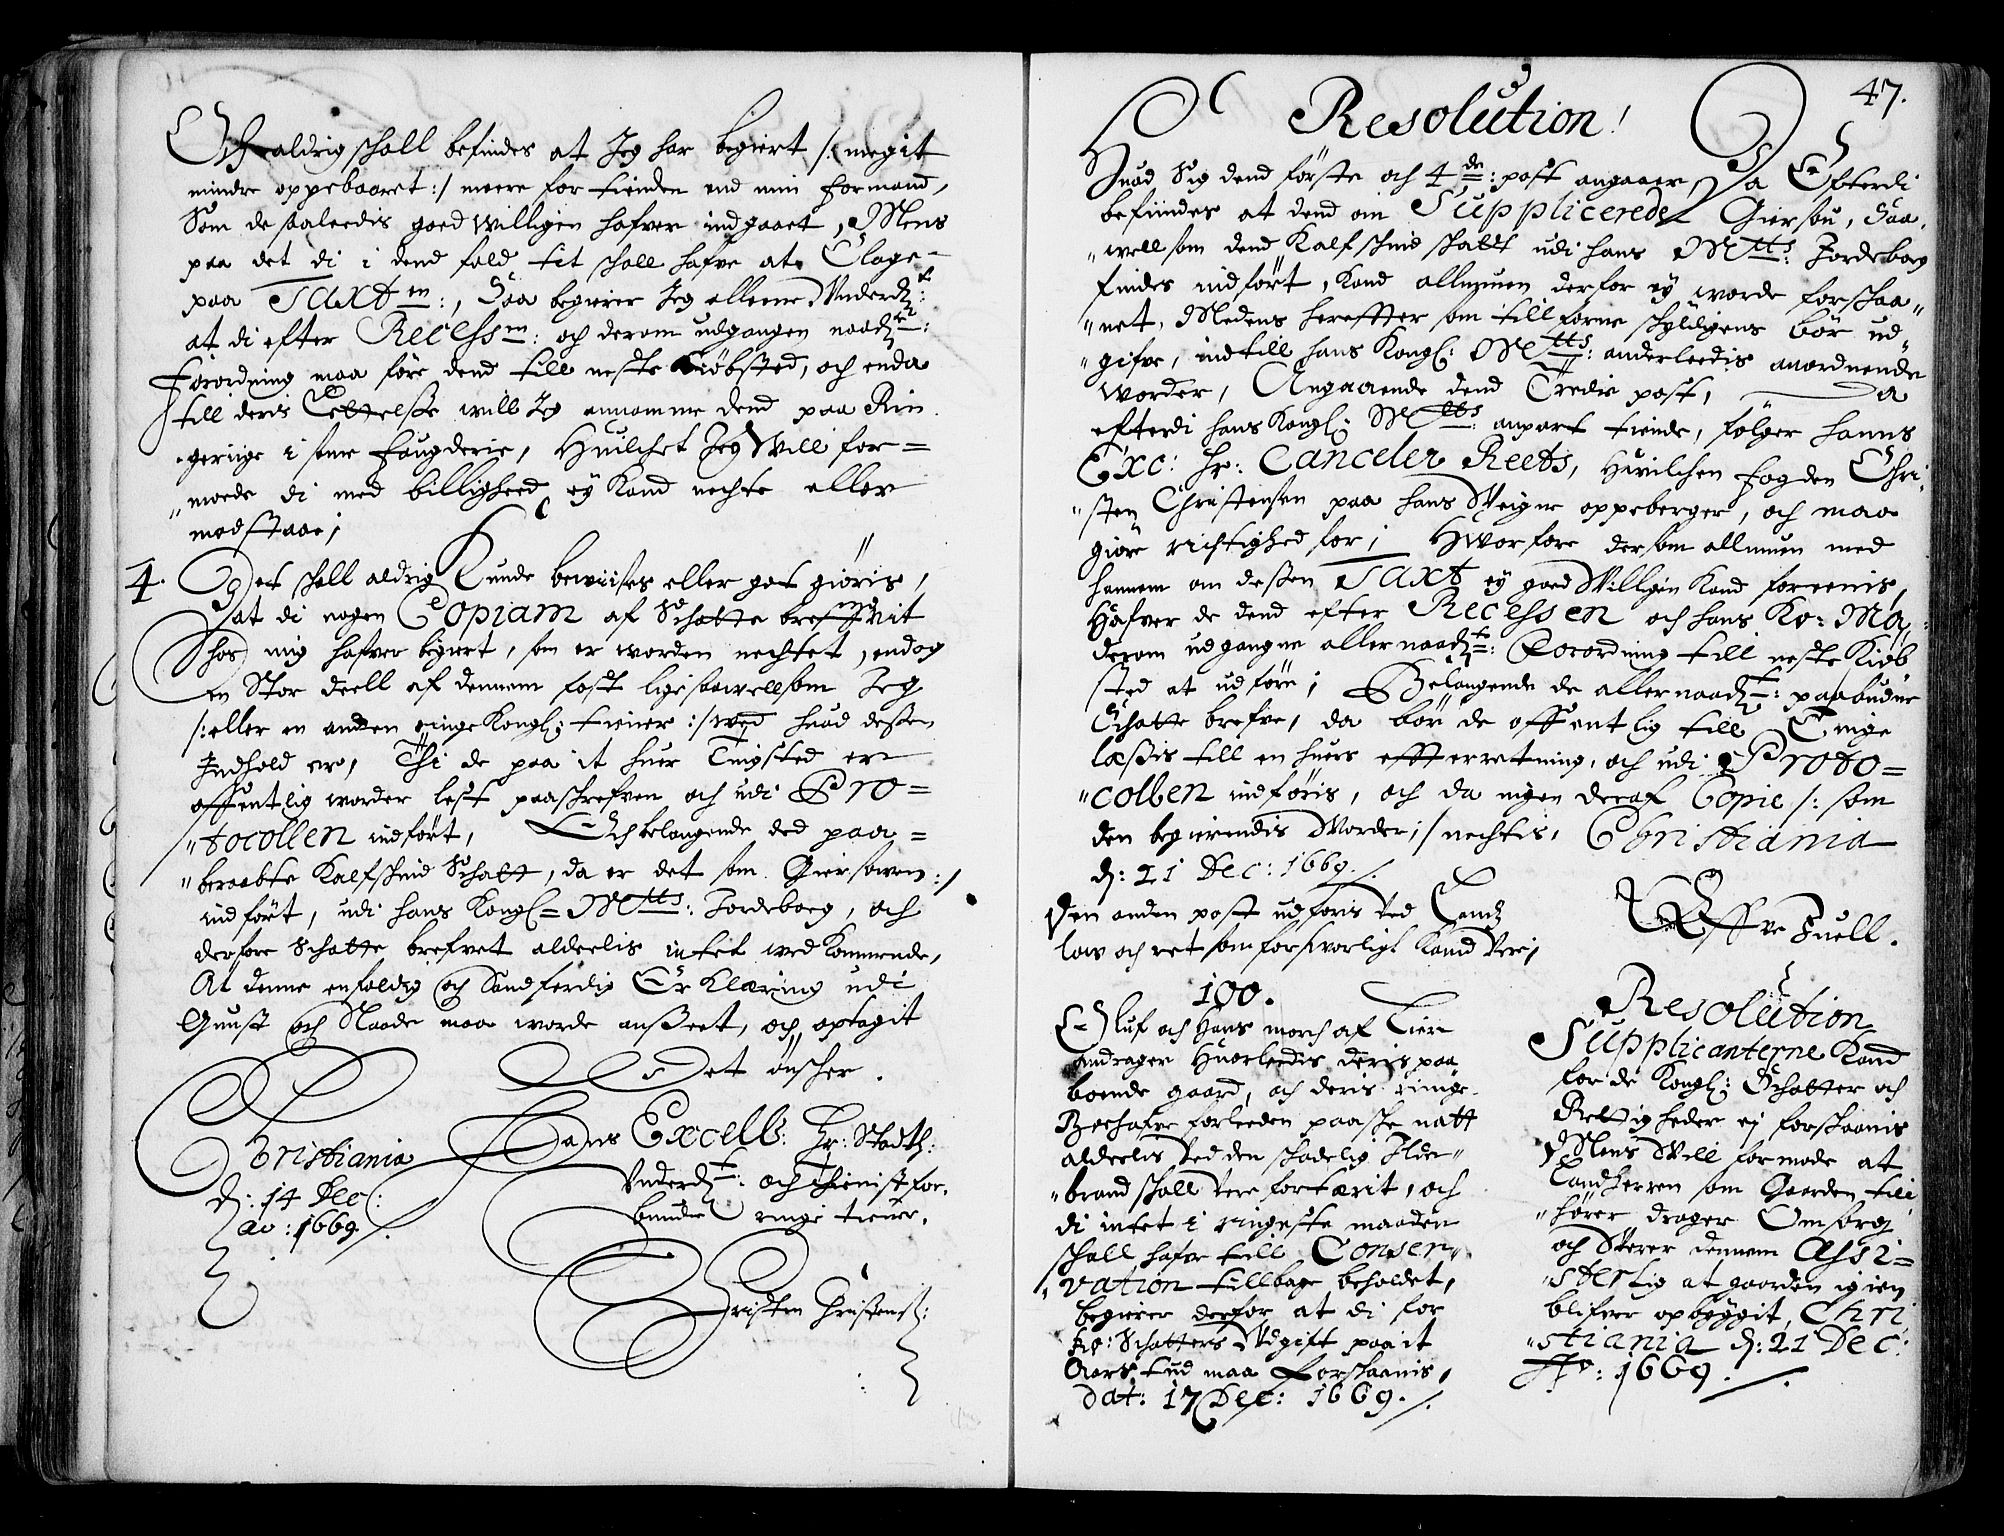 Och aldrig schall befindes at Jeg har begiert /: megit
mindre oppebaaret :/ meere for tienden end min formand,
Som de saaleedis goed willigen hafver indgaaet, Mens
paa det di i dend fald tit schall hafve at Clage
paa Taxt m:, Saa begierer Jeg alleene Underd:
at di efter Recessm: och derom udgangen naad:
forordning maa føre dend till neste kiøbsted, och enda
till deris Lettelsse will Jeg annamme dend paa Rin
gerige i some faugderie, Huilchet Jeg will for=
"mode di med billighed ey kand nechte eller
modstaae;
4. Det schall aldrig kunde bewiises eller got giøris,
at di nogen Copiam af Schatte brefvit
hos mig hafver begiert, som er worden nechtet, endog
en Stor deell af dennem fast ligesaawellsom Jeg
/: eller en anden ringe Kongl: tiener :/ wed huad dessen
Indhold ere, Thi de paa it huer Tingsted er
offentlig worder lest paaschrefven och udi Pro=
"tocollen indført, Och belangende ded paa=
"beraabte Kalfskind Schatt, da er det som Giersomen :/
indført, udi hans Kongl= Mtts: Jordebog, och
derfore Schatte brefvet aldeelis intet wedkommende,
At denne enfoldig och Sandferdig Erklæring udi
Gunst och Naade maa worde anseet, och optagit
Det ønscher
Christiania
d: 14 Dec:
ao: 1669 /.
Hans Excell: Hr: Stadth:
Underd: och thienist for,
bundne ringe tiener,
Christen Christens:
47.
Resolution!
Huad Sig dend første och 4de: post angaaer, Da Efterdi
befindes at dend om Supplicerede Giersou, Saa,
"well som dend Kalfschind schatt udi hans Mtts: Jordebog
findes indført, kand allmuen derfor ey worde forschaa"
"net, Medens herefter som tillforne schyldigens bør ud"
"gifve, indtill hans Kongl: Mtts: anderleedis anordnende
worder, Angaaende dend Tredie post, Da
efterdi hans Kongl: Mtts: anpart tiende, følger hanns
Exc: Hr: Canceler Reets, Huilchen fogden Chri,
"sten Christensen paa hans Weigne oppeberger, och maa
giøre richtighed for; Hworfore dersom allmuen med
hannem om dessen Taxt ey goed Willigen kand foreenis,
Hafver de dend efter Recessen och hans Ko: Ma:
derom udgangne allernaad: Forordning till neste Kiøb
sted at udføre; Belangende de allernaad: paabudne
Schatte brefve, da bør de offentlig till Tinge
læsis till en huers effterretning, och udi Proto=
"collen indføris, och da ingen deraf Copie /: som
den begierendis worder :/ nechtis, Christiania
d: 21 Dec: 1669 /.
Den anden post udføris ved Landz
low och ret som forsworligt kand vere,
Ove Juell.
100.
Oluf och Hans morch af Lier
andrager Huorleedis deris paa
boende gaard, och deris ringe
Boehafve forleeden paasche natt
aldeelis ved den schadelig Ilde"
"brand schall vere fortærit, och
di intet i ringeste maaden
schall hafve till Conser"
"vation tillbage beholdet,
begierer derfor at di for
Ko: Schatters Udgift paa it
Aars tid maa forschaanis,
Dat: 17 Dec: 1669 /.
Resolution
Supplicanterne Kand
for de Kongl: Schatter och
Rettigheder ej forschaanis
Mens Will formode at
Landherren som Gaarden till
"hører drager Omsorg
och Werer dennem Assi=
"sterlig at gaarden igien
blifver opbyggit, Chri
"stiania d: 21 Dec:
Ao: 1669 /.